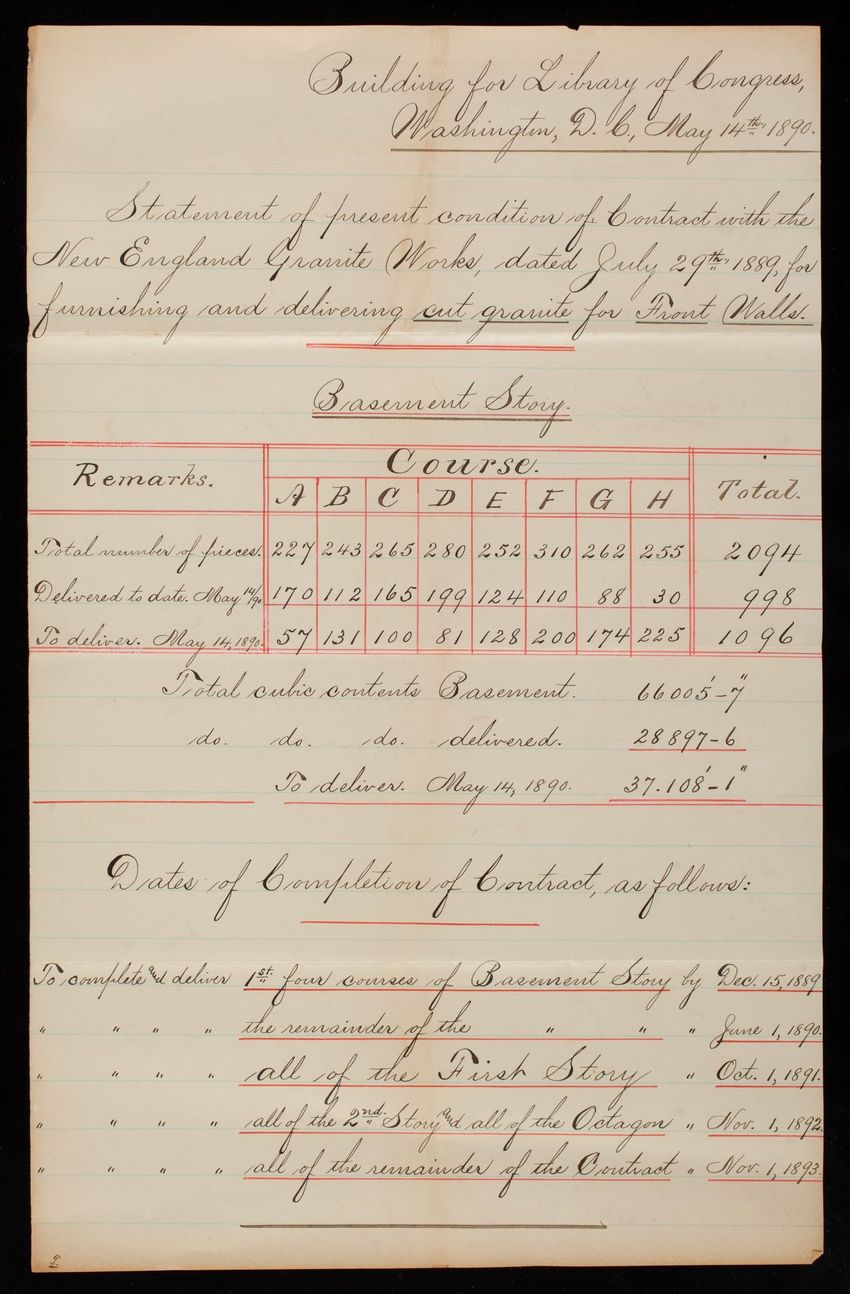 Building for Library of Congress,
Washington, D. C., May 14th, 1890.
Statement of present condition of Contract with the
New England Granite Works, dated July 29th, 1889, for
furnishing and delivering cut granite for Front Walls.
Basement Story.
Remarks. Course. Total.
A B C D E F G H
Total number of pieces. 227 243 265 280 252 310 262 255 2094
Delivered to date. May 14/90 170 112 165 199 124 110 88 30 998
To deliver. May 14, 1890. 57 131 100 81 128 200 174 225 1096
Total cubic contents Basement. 66005'-7"
do. do. do. delivered. 28897-6
To deliver. May 14, 1890. 37.108'-1"
Dates of Completion of Contract, as follows:
To complete and deliver 1st. four courses of Basement Story by Dec. 15, 1889
" " " " the remainder of the " " " June 1, 1890.
" " " " all of the First Story " Oct. 1, 1891.
" " " " all of the 2nd. Story and all of the Octagon " Nov. 1, 1892.
" " " " all of the remainder of the Contract " Nov. 1, 1893.